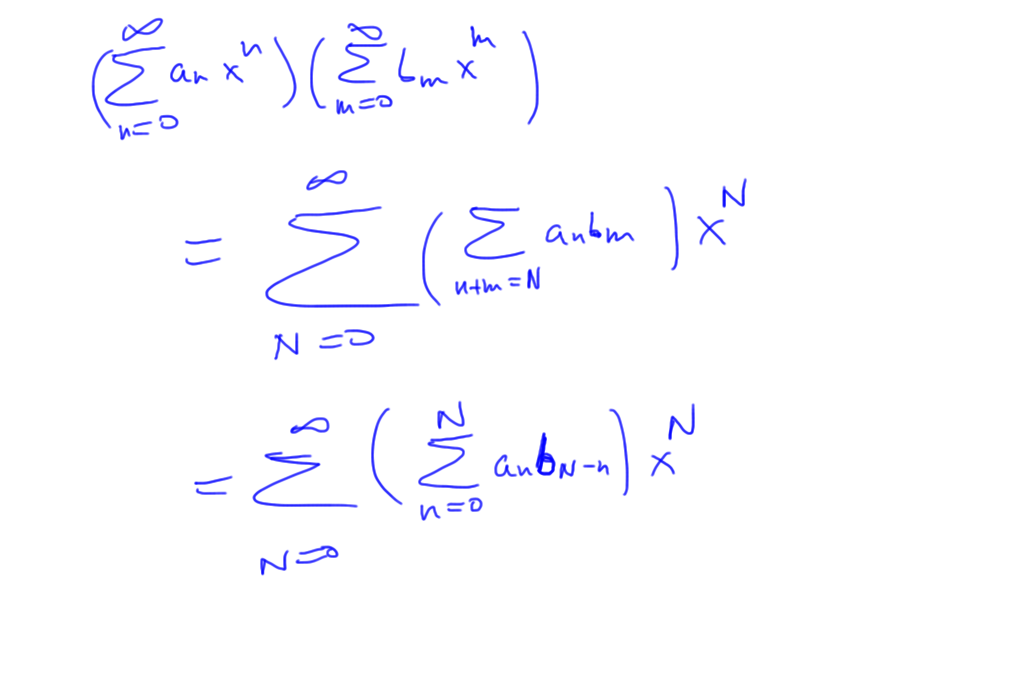 $\left(\sum_{n=0}^{\infty} a_n x^n\right)\left(\sum_{m=0}^{\infty} b_m x^m\right)$
$= \sum_{N=0}^{\infty} \left(\sum_{n+m=N} a_n b_m\right) x^N$
$= \sum_{N=0}^{\infty} \left(\sum_{n=0}^{N} a_n b_{N-n}\right) x^N$